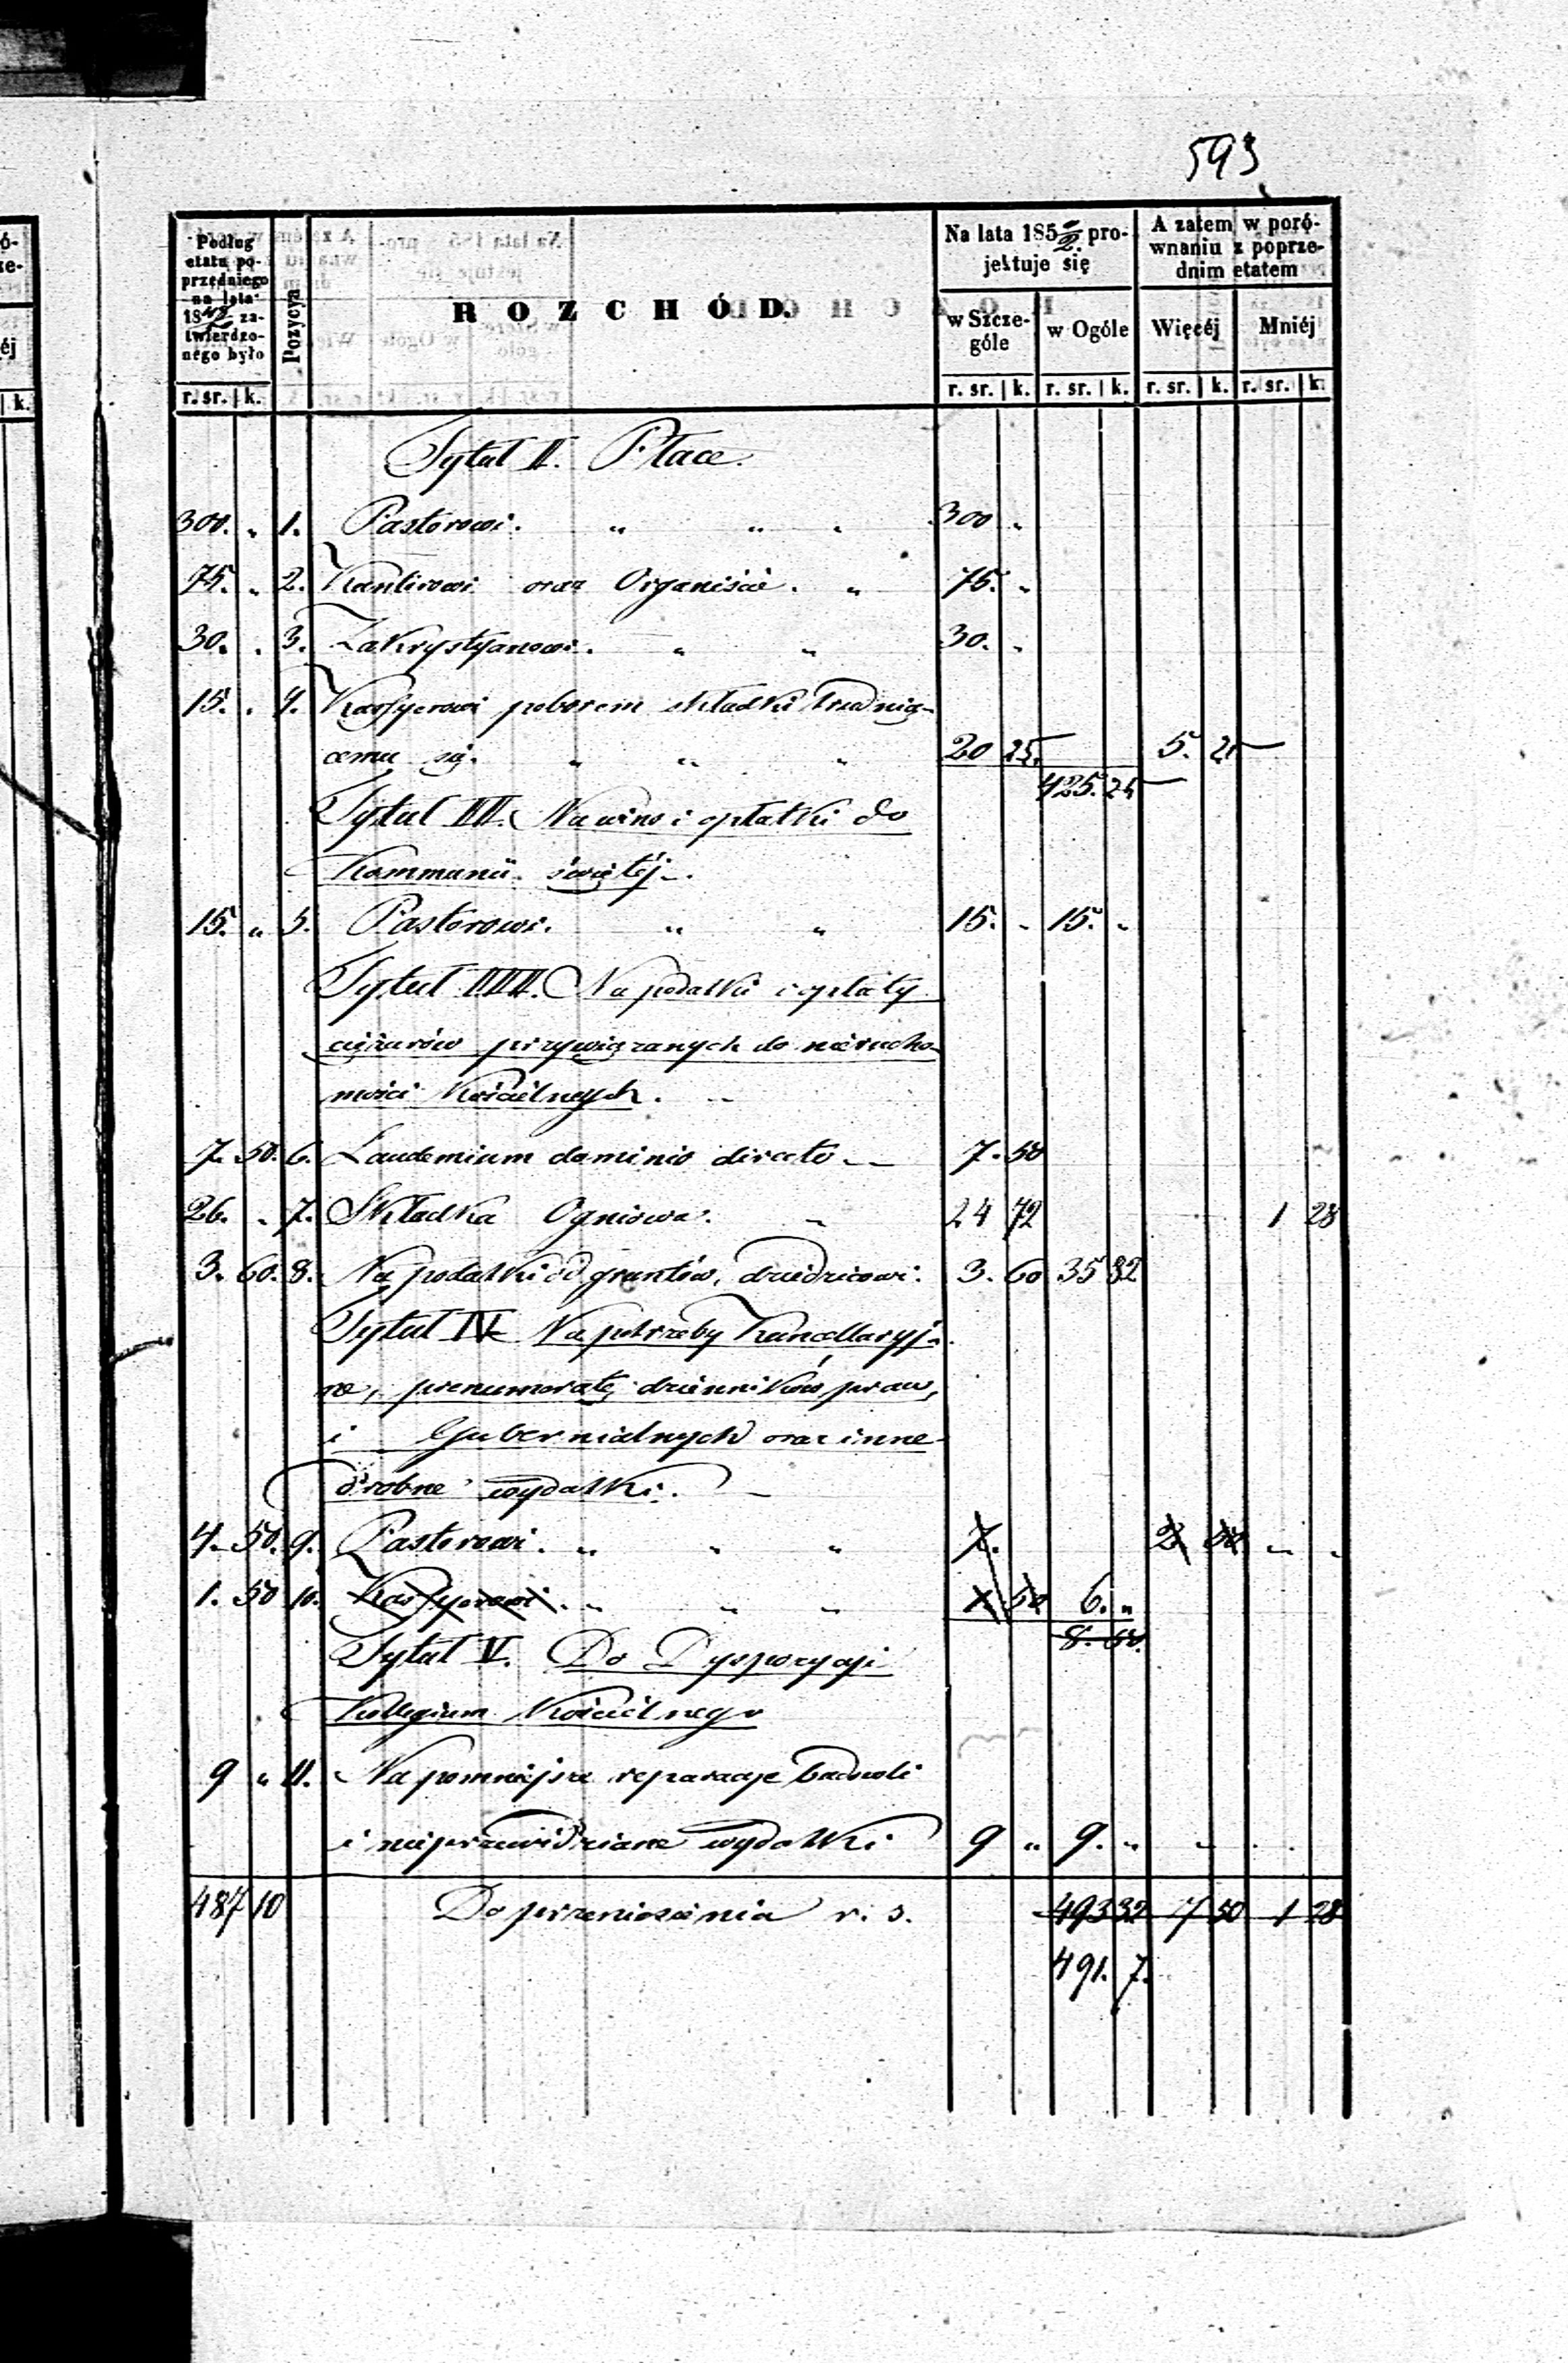 593
Podług etatu poprzedniego na lata 184 zatwierdzonego było
Pozycya
ROZCHÓD.
Na lata 185 projektuje się
A zatem w porównaniu z poprzednim etatem
w Szczególe
w Ogóle
Więcéj
Mniéj
r. sr. k. r. sr. k. r. sr. k. r. sr. k. r. sr. k.
Tytuł II. Płace.
300. „ 1. Pastorowi. „ „ „ 300 „
75. „ 2. Kantorowi oraz Organiście. „ 75. „
30. „ 3. Zakrystyanowi. „ „ 30. „
15. „ 4. Kassyerowi poborem składki trudnią-
cemu się. „ „ „ 20 25. 5. 25
425. 25
Tytuł III. Na wino i opłatki do
Kommunii świętéj.
15. „ 5. Pastorowi. „ „ 15. „ 15. „
Tytuł IIII. Na podatki i opłaty
ciężarów przywiązanych do nierucho-
mości Kościelnych.
7. 50. 6. Laudemium dominio directo 7. 50
26. „ 7. Składka Ogniowa. 24 72 1 28
3. 60. 8. Na podatki od gruntów, dziedzicowi. 3. 60 35 82
Tytuł IV Na potrzeby Kancellaryj-
ne, prenumeratę dzienników praw,
i Gubernialnych oraz inne
drobne wydatki.
4. 50. 9. Pastorowi. „ „ „ 7. 2 50 „ „
1. 50 10. Kassyerowi. „ „ „ 1 50 6. „
8. 50.
Tytuł V. Do Dyspozycyi
Kollegium Kościelnego
9 „ 11. Na pomniejsze reparacje budowli
i nieprzewidziane wydatki 9 „ 9. „
487 10 Do przeniesienia r. s. 493 32 7 50 1 28
491. 7.